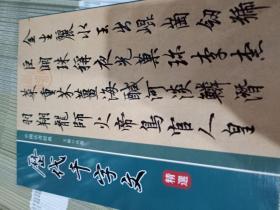 金生麗水玉出崐崗劍號
巨闕珠稱夜光菓珎李柰
菜重芥薑海鹹河淡鱗潛
羽翔龍師火帝鳥官人皇
歷代千字文
精選